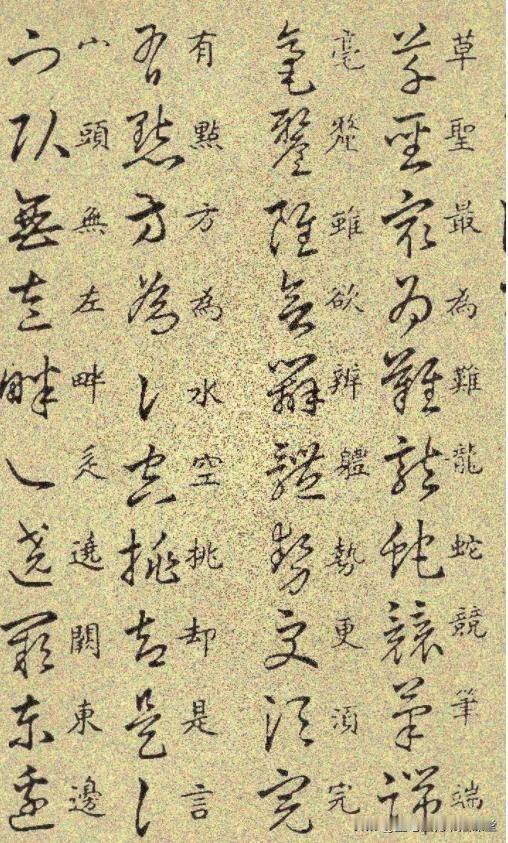 草聖最為難龍蛇競筆端
毫釐雖欲辨體勢更須完
有點方為水空挑却是言
山頭無左畔辵遶闕東邊